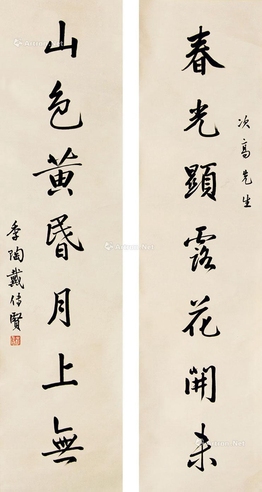 次高先生
春光顯露花開未
山色黃昏月上無
季陶戴傳賢